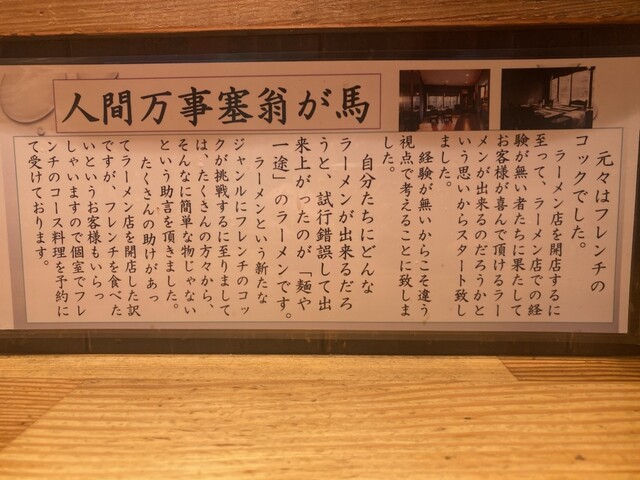 人間万事塞翁が馬
元々はフレンチの
コックでした。
ラーメン店を開店するに
至って、ラーメン店での経
験が無い者たちに果たして
お客様が喜んで頂けるラー
メンが出来るのだろうかと
いう思いからスタート致し
ました。
経験が無いからこそ違う
視点で考えることに致しま
した。
自分たちにどんな
ラーメンが出来るだろ
うと、試行錯誤して出
来上がったのが「麺や
一途」のラーメンです。
ラーメンという新たな
ジャンルにフレンチのコッ
クが挑戦するに至りまして
は、たくさんの方々から、
そんなに簡単な物じゃない
という助言を頂きました。
たくさんの助けがあっ
てラーメン店を開店した訳
ですが、フレンチを食べた
いというお客様もいらっ
しゃいますので個室でフレ
ンチのコース料理を予約に
て受けております。